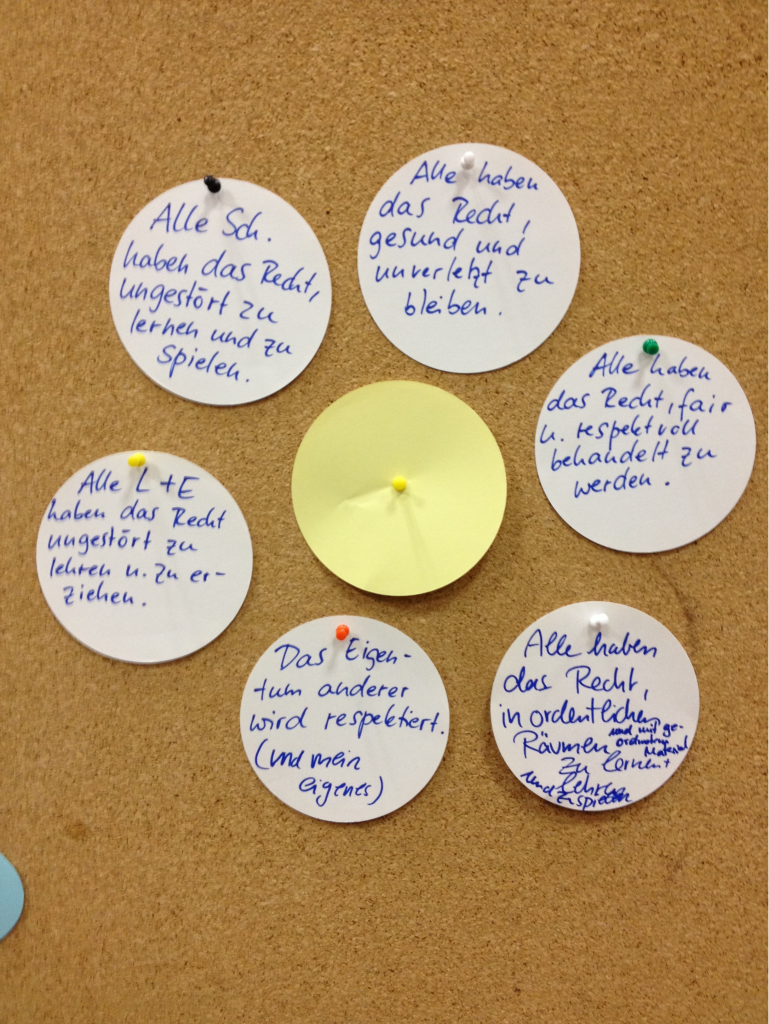 Alle Sch.
haben das Recht,
ungestört zu
lernen und zu
spielen.
Alle haben
das Recht,
gesund und
unverletzt zu
bleiben.
Alle haben
das Recht, fair
u. respektvoll
behandelt zu
werden.
Alle L + E
haben das Recht
ungestört zu
lehren u. zu er-
ziehen.
Das Eigen-
tum anderer
wird respektiert.
(und mein
eigenes)
Alle haben
das Recht,
in ordentlichen
und mit ge-
Räumen ordnetem
Material
zu lernen +
und